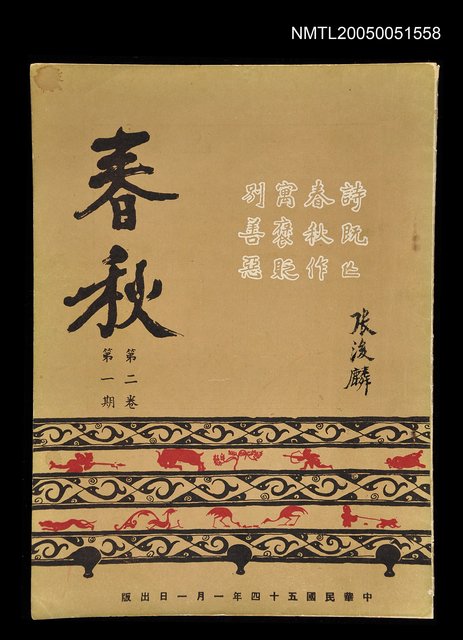 NMTL20050051558
春秋
詩既亡
春秋作
寓褒貶
別善惡
張浚麟
第二卷
第一期
中華民國五十四年一月一日出版